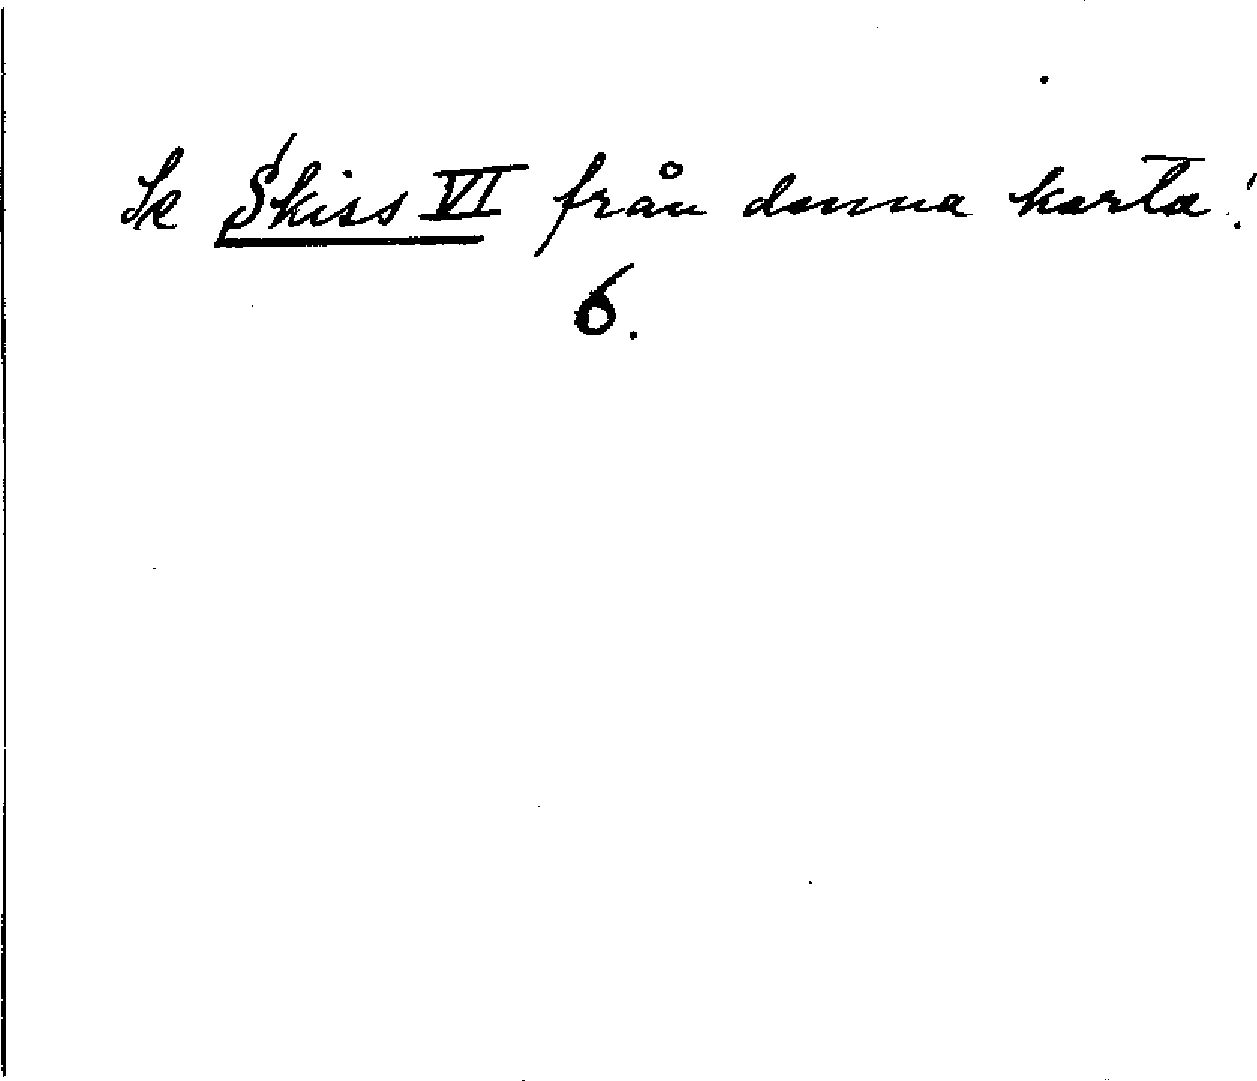 Se Skiss VI från denna karta!
6.